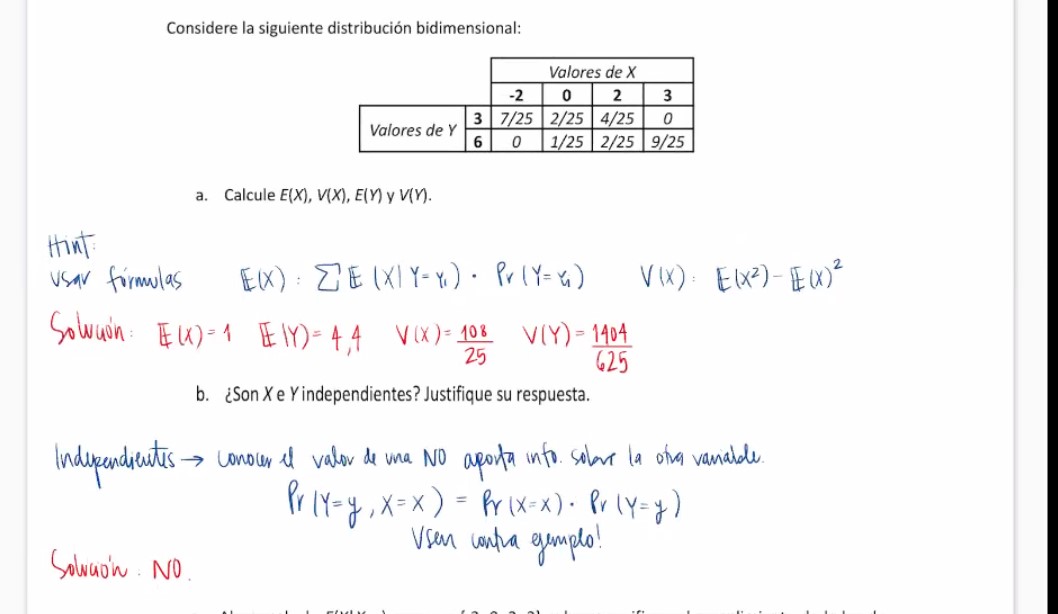 Considere la siguiente distribución bidimensional:
Valores de X
-2 0 2 3
Valores de Y 3 7/25 2/25 4/25 0
6 0 1/25 2/25 9/25
a. Calcule E(X), V(X), E(Y) y V(Y).
Hint:
Usar fórmulas E(X): ∑ E (X|Y=Yi) · Pr (Y=Yi) V(X): E(X²) - E(X)²
Solución: E(X)=1 E(Y)=4,4 V(X)=108/25 V(Y)=1404/625
b. ¿Son X e Y independientes? Justifique su respuesta.
Independientes → conocer el valor de una NO aporta info. sobre la otra variable.
Pr (Y=y, X=x) = Pr (X=x) · Pr (Y=y)
Usen contra ejemplo!
Solución: NO.